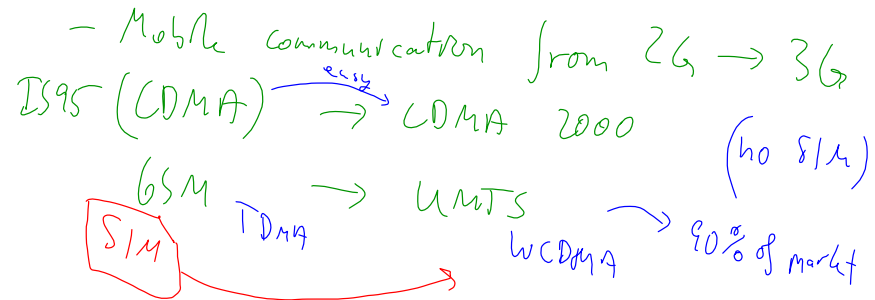 - Mobile communication from 2G → 3G
easy
IS95 (CDMA) → CDMA 2000
(no SIM)
GSM → UMTS
SIM TDMA WCDMA → 90% of market